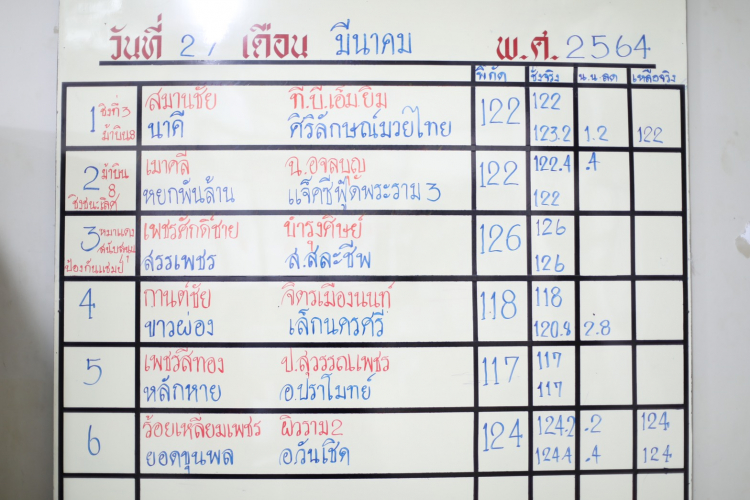 วันที่ 27 เดือน มีนาคม พ.ศ. 2564
พิกัด ชั่งจริง น.น.ลด เหลือจริง
1 ชิงที่3 สมานชัย ที.บี.เอ็มยิม 122 122
ม้าบิน8 นาคี ศิริลักษณ์มวยไทย 123.2 1.2 122
2 ม้าบิน 8 เมาคลี ฉ.อจลบุญ 122 122.4 .4
ชิงชนะเลิศ หยกพันล้าน แจ็คชีฟู้ดพระราม 3 122
3 เพชรศักดิ์ชาย บำรุงศิษย์ 126 126
ป้องกันแชมป์ สรรเพชร ส.สละชีพ 126
4 กานต์ชัย จิตรเมืองนนท์ 118 118
ขาวผ่อง เล็กนครศรี 120.8 2.8
5 เพชรสีทอง ป.สุวรรณเพชร 117 117
หลักหาย อ.ปราโมทย์ 117
6 ร้อยเหลี่ยมเพชร ผิวราม2 124 124.2 .2 124
ยอดขุนพล อ.วันเชิด 124.4 .4 124